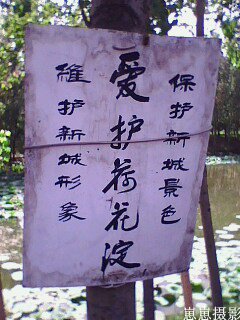 保护新城景色
爱护荷花淀
維护新城形象
思思摄影